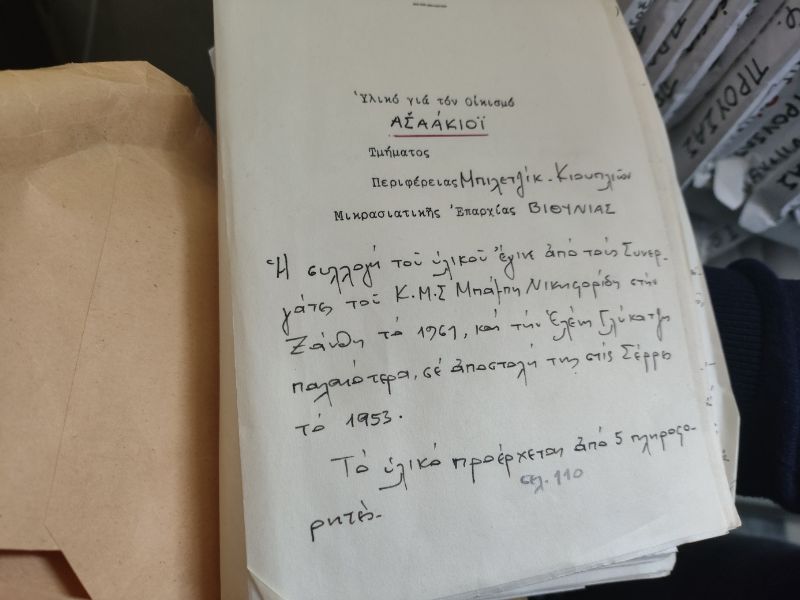 Ὑλικό γιά τόν οἰκισμό
ΑΣ̌ΑΆΚΙΟΪ
Τμήματος
Περιφέρειας Μπιλετζίκ - Κιουπλιῶν
Μικρασιατικῆς Ἐπαρχίας ΒΙΘΥΝΙΑΣ
Ἡ συλλογή τοῦ ὑλικοῦ ἔγινε ἀπό τούς Συνερ-
γάτες τοῦ Κ.Μ.Σ Μπάμπη Νικηφορίδη στήν
Ξάνθη τό 1961, καί τήν Ἑλένη Γλύκατζη
παλαιότερα, σέ ἀποστολή της στίς Σέρρες
τό 1953.
Τό ὑλικό προέρχεται ἀπό 5 πληροφο-
σελ. 110
ρητές.
ΠΡΟΥΣΑΣ